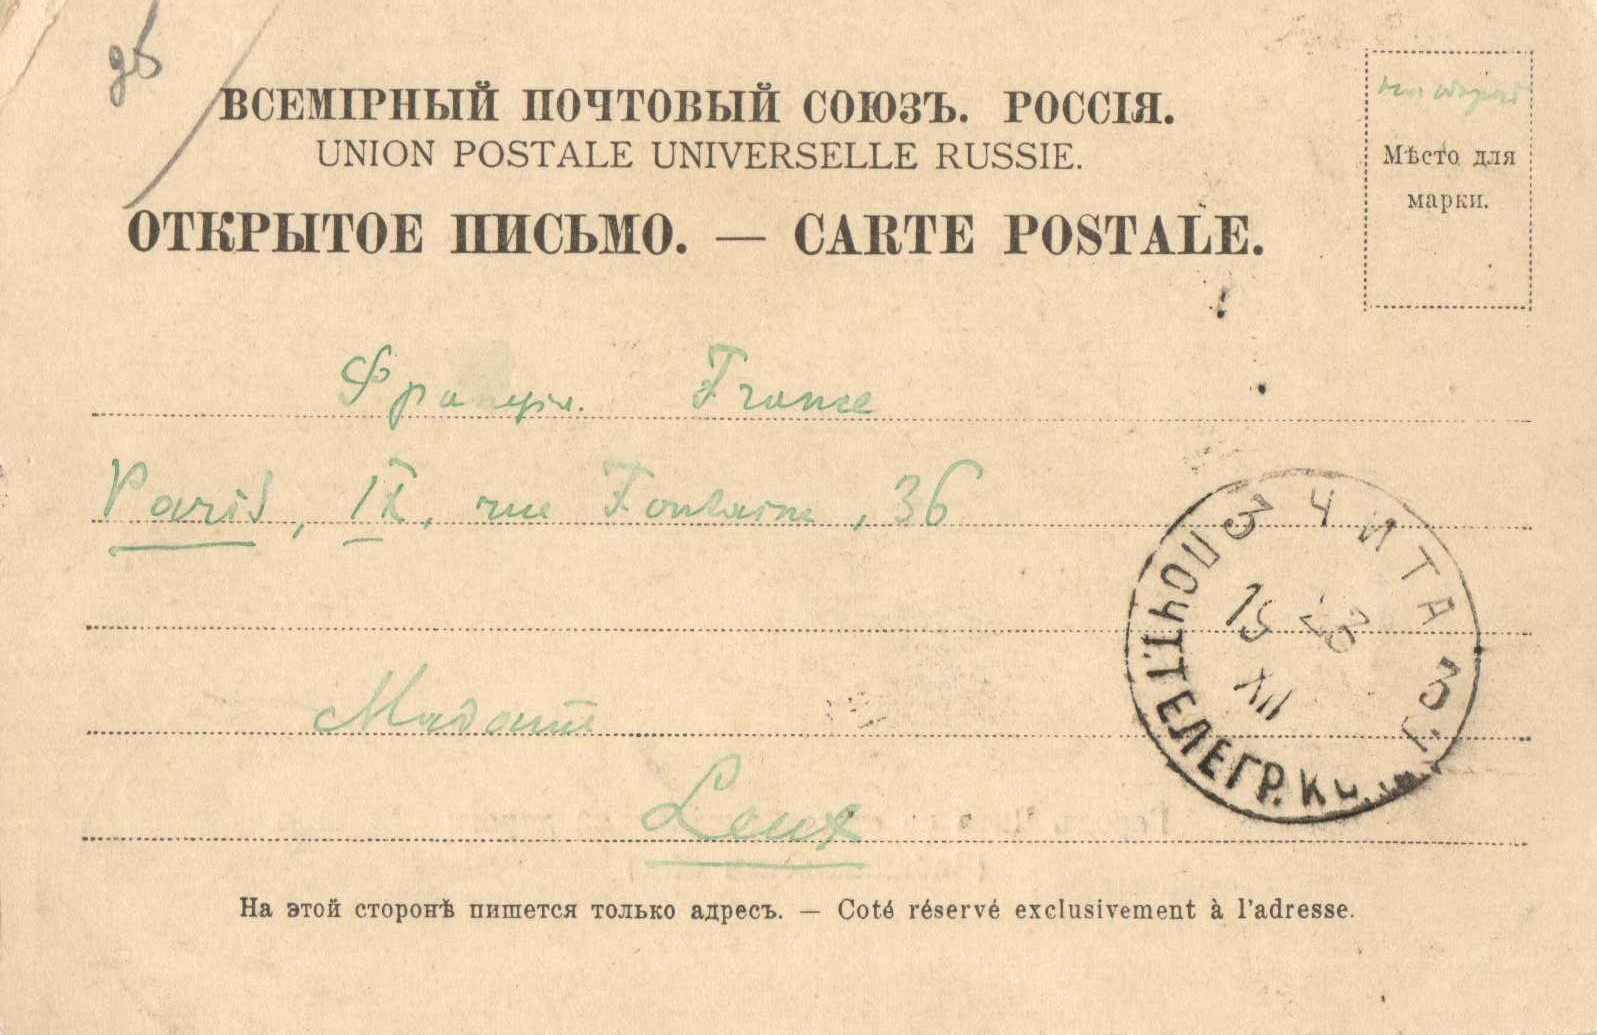 ВСЕМІРНЫЙ ПОЧТОВЫЙ СОЮЗЪ. РОССІЯ.
UNION POSTALE UNIVERSELLE RUSSIE.
ОТКРЫТОЕ ПИСЬМО. — CARTE POSTALE.
Мѣсто для
марки.
Франція. France
Paris, IX, rue Fontaine, 36
Madame
Leux
ЧИТА
ПОЧТ. ТЕЛЕГР. К
19 XII
На этой сторонѣ пишется только адресъ. — Coté réservé exclusivement à l'adresse.